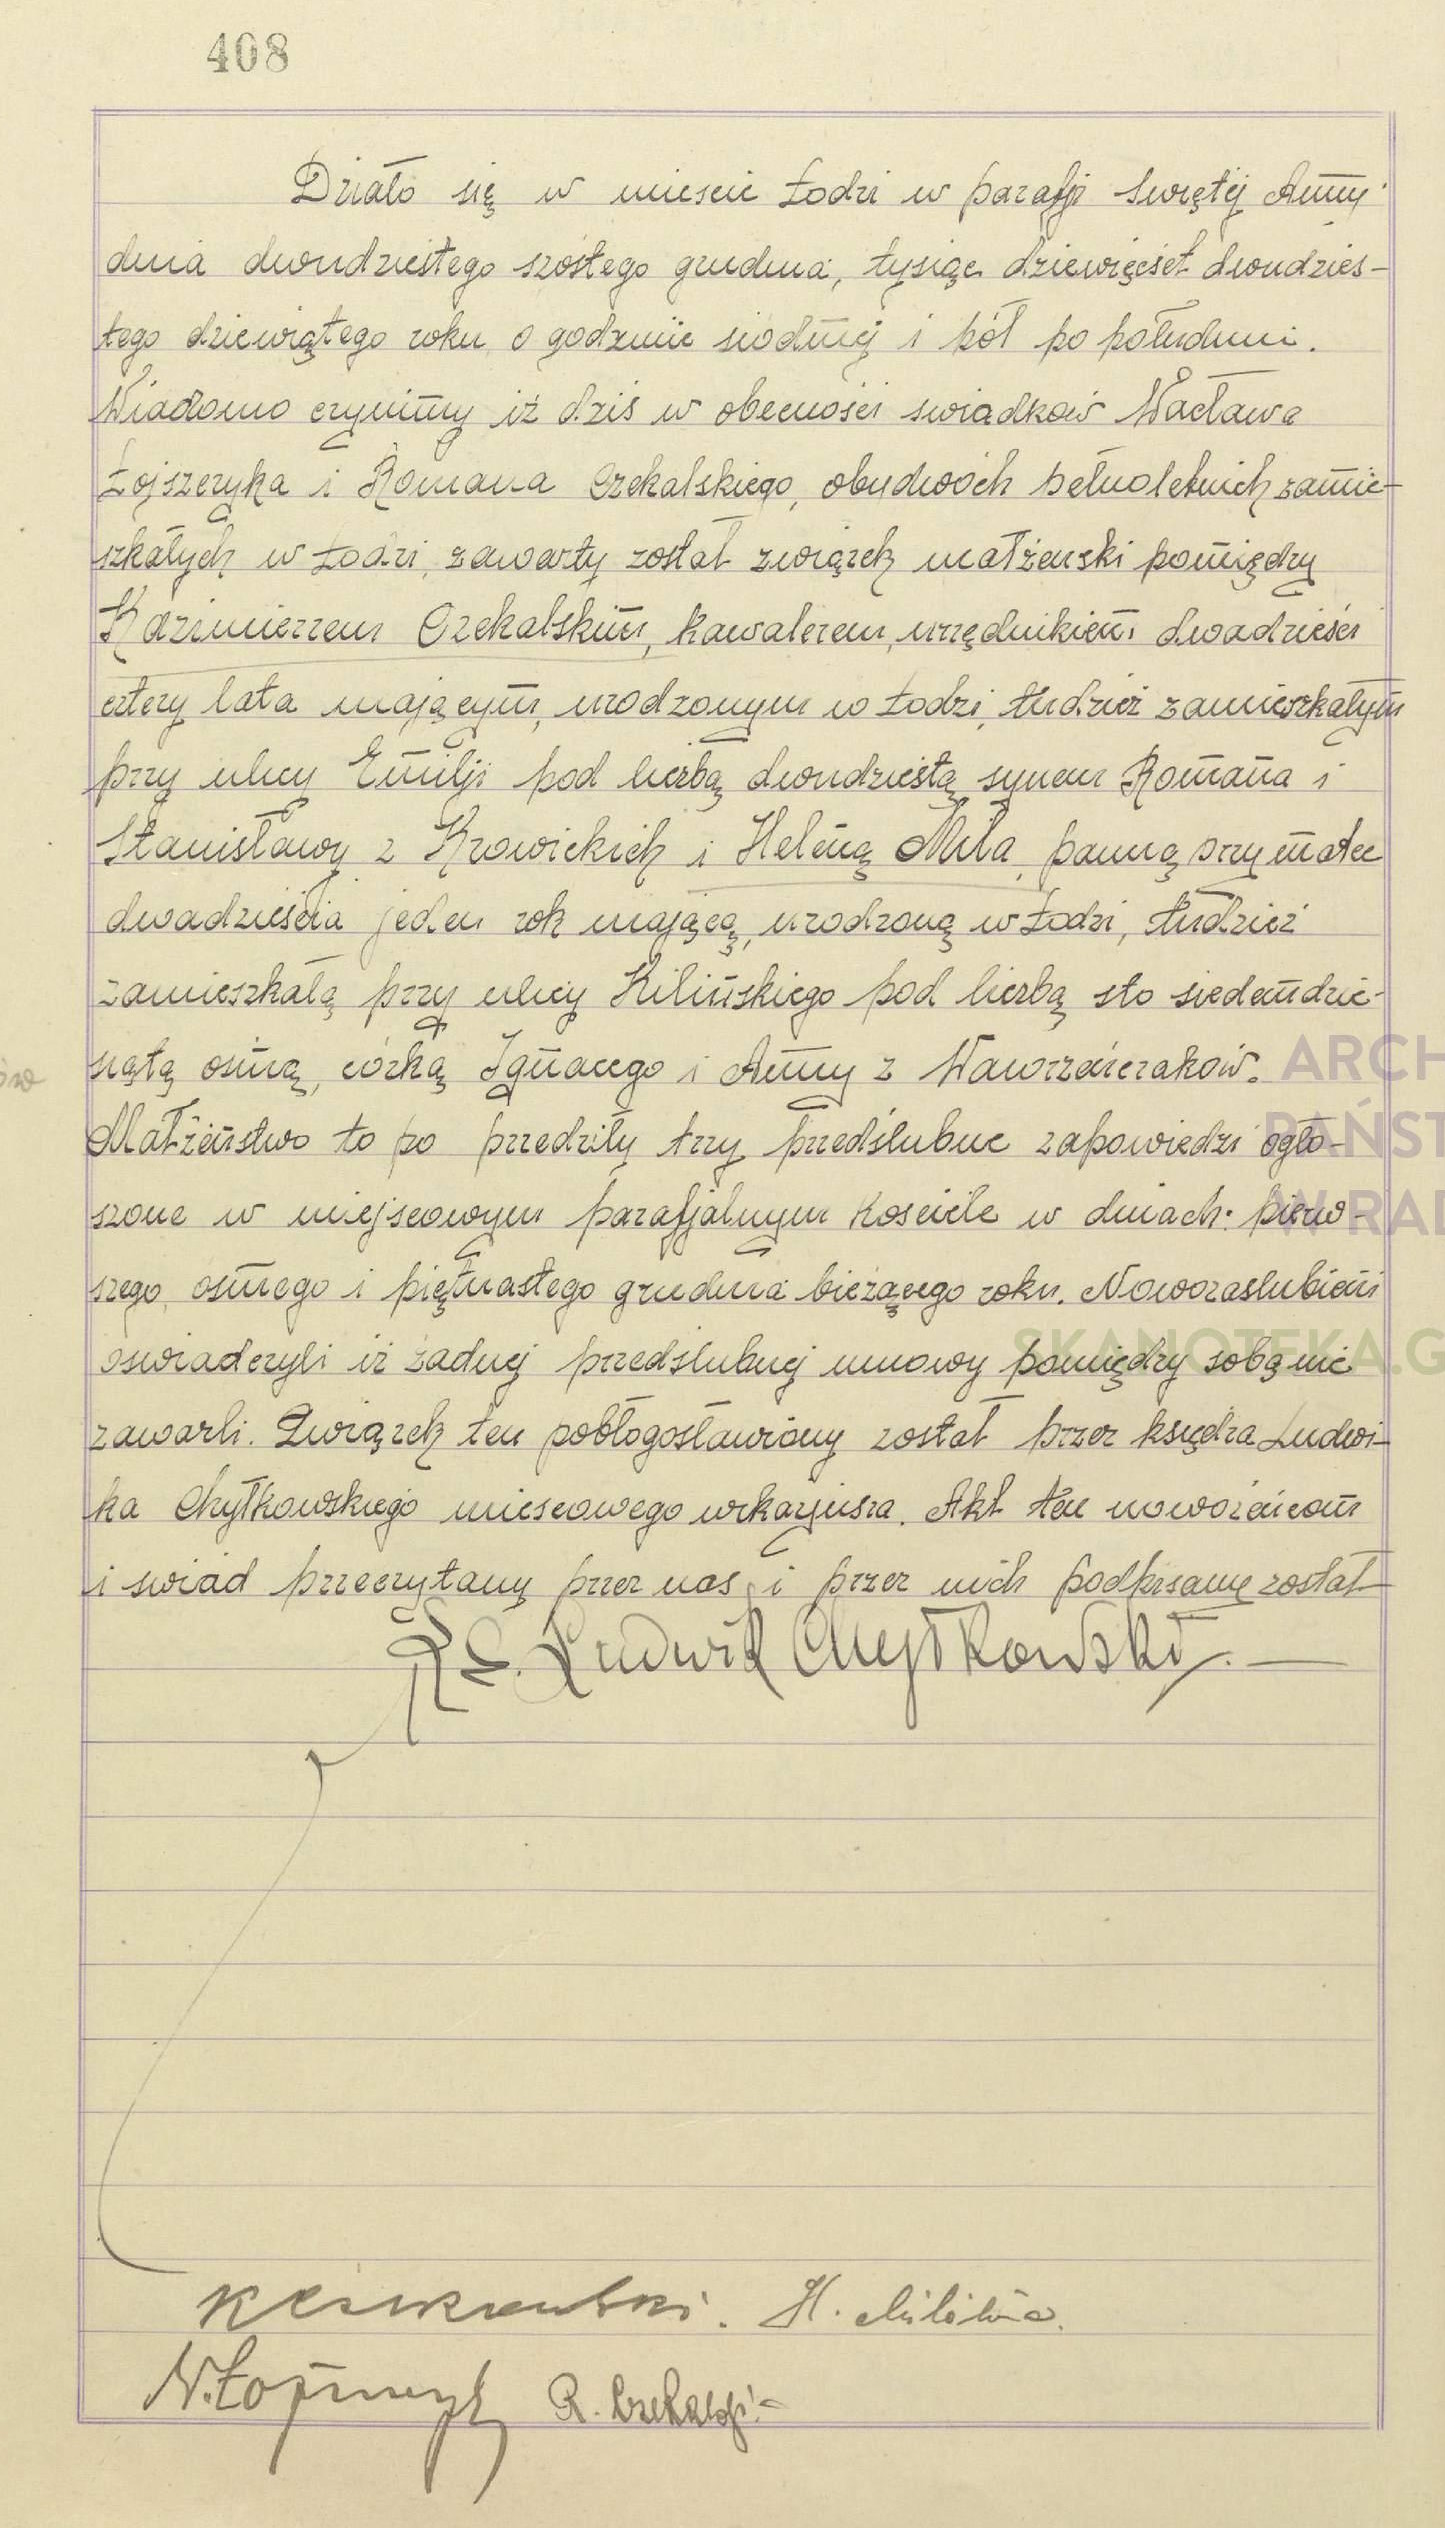 408
Działo się w mieście Łodzi w parafji Świętej Anny
dnia dwudziestego szóstego grudnia, tysiąc dziewięćset dwudzies-
tego dziewiątego roku o godzinie siódmej i pół po południu.
Wiadomo czynimy iż dziś w obecności świadków Wacława
Łojszczyka i Romana Czekalskiego, obydwóch pełnoletnich zamie-
szkałych w Łodzi, zawarty został związek małżeński pomiędzy
Kazimierzem Czekalskim, kawalerem, urzędnikiem, dwadzieścia
cztery lata mającym, urodzonym w Łodzi, tudzież zamieszkałym
przy ulicy Emilji pod liczbą dwudziestą synem Romana i
Stanisławy z Krowickich i Heleną Mila, panną przy matce
dwadzieścia jeden rok mającą, urodzoną w Łodzi, tudzież
zamieszkałą przy ulicy Kilińskiego pod liczbą sto siedemdzie-
siątą ósmą, córką Ignacego i Anny z Wawrzeńczaków.
Małżeństwo to po przedziły trzy przedślubne zapowiedzi ogło-
szone w miejscowym parafjalnym Kościele w dniach: pierw-
szego, ósmego i piętnastego grudnia bieżącego roku. Nowozaślubieni
oświadczyli iż żadnej przedślubnej umowy pomiędzy sobą nie
zawarli. Związek ten pobłogosławiony został przez księdza Ludwi-
ka Chytkowskiego miescowego wikarjusza. Akt ten nowożeńcom
i świad przeczytany przez nas i przez nich podpisany został
Ks. Ludwik Chytkowski.
H.
W. Łojszczyk R. Czekalski
ARCH
PAŃST
W RAD
SKANOTEKA.G